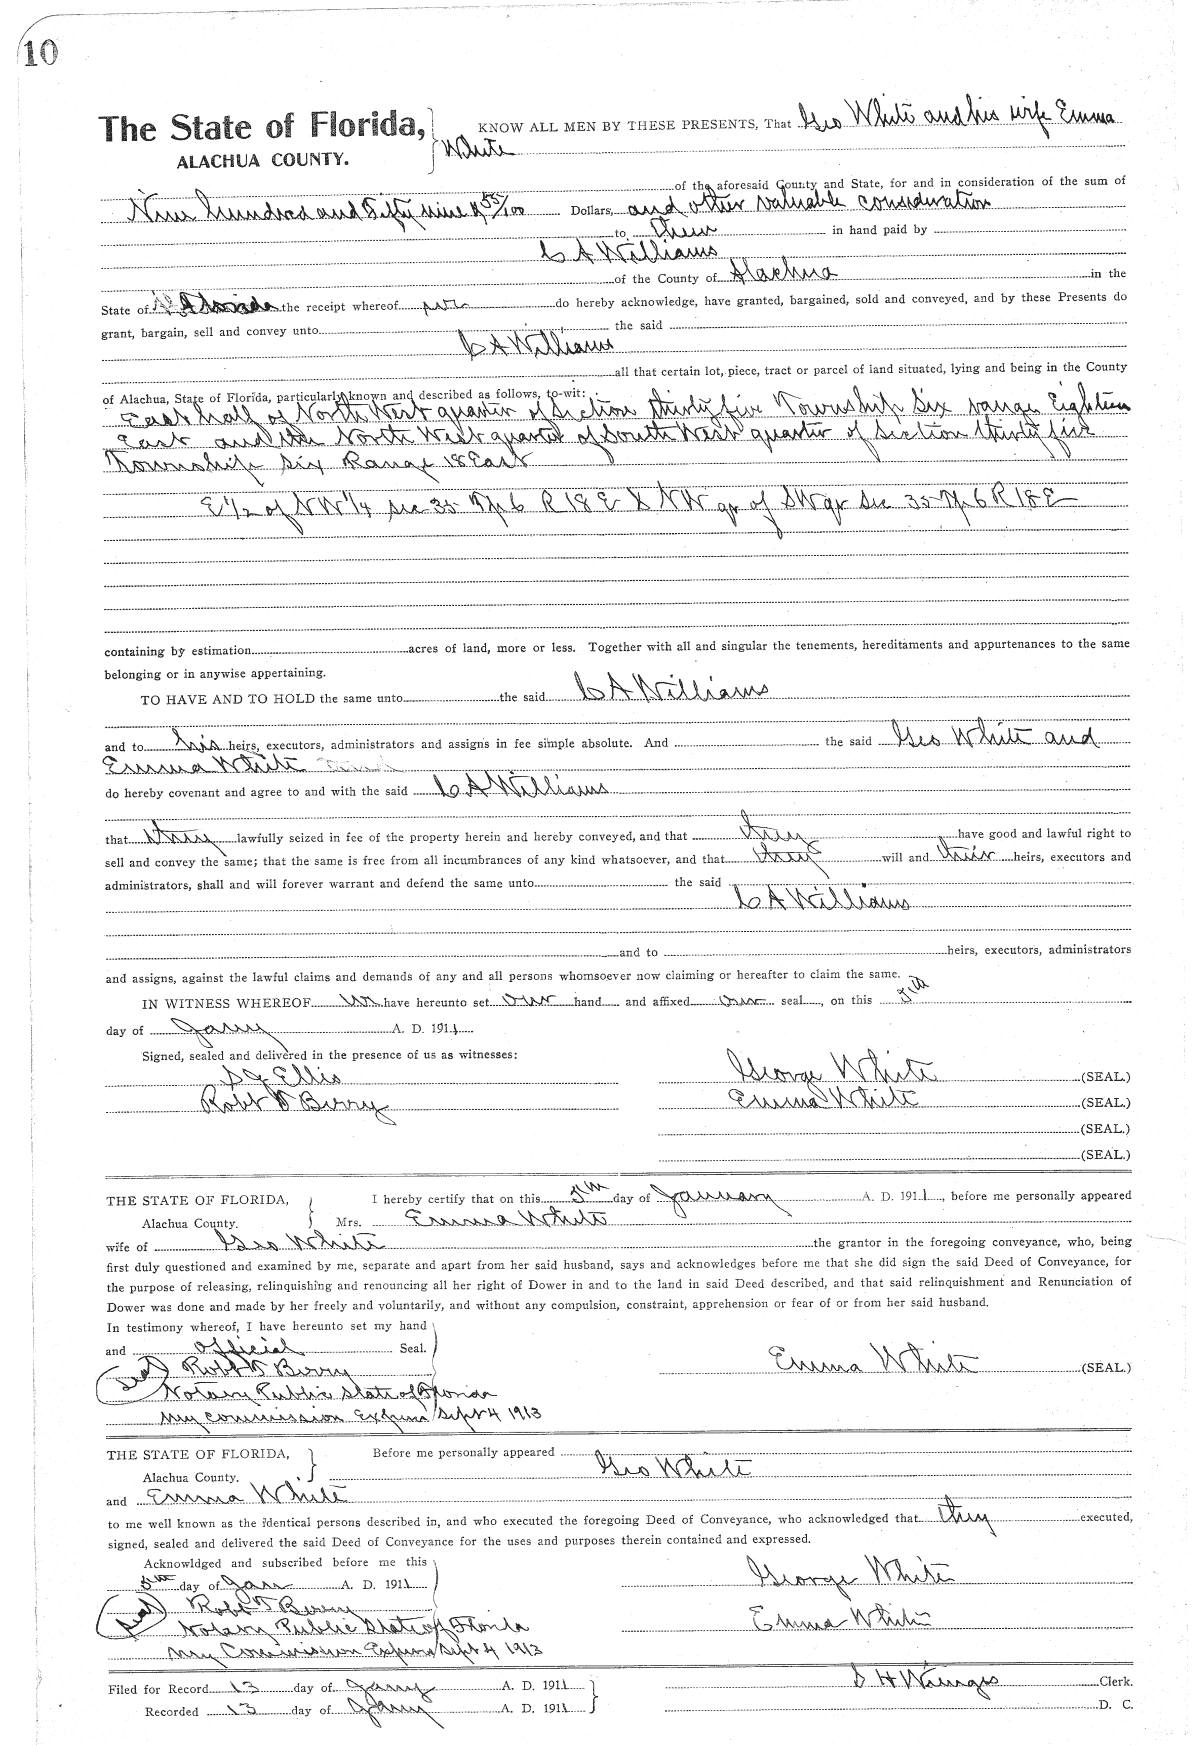 10
The State of Florida, KNOW ALL MEN BY THESE PRESENTS, That Geo White and his wife Emma
ALACHUA COUNTY. White
of the aforesaid County and State, for and in consideration of the sum of
Nine hundred and Fifty nine & 55/100 Dollars, and other valuable consideration
to them in hand paid by
C A Williams
of the County of Alachua in the
State of Florida the receipt whereof we do hereby acknowledge, have granted, bargained, sold and conveyed, and by these Presents do
grant, bargain, sell and convey unto the said
C A Williams
all that certain lot, piece, tract or parcel of land situated, lying and being in the County
of Alachua, State of Florida, particularly known and described as follows, to-wit:
East half of North West quarter of Section thirty five Township Six range Eighteen
East and the North West quarter of South West quarter of Section thirty five
Township six Range 18 East
E 1/2 of NW 1/4 sec 35 Tp 6 R 18 E & NW qr of SW qr Sec 35 Tp 6 R 18 E
containing by estimation acres of land, more or less. Together with all and singular the tenements, hereditaments and appurtenances to the same
belonging or in anywise appertaining.
TO HAVE AND TO HOLD the same unto the said C A Williams
and to his heirs, executors, administrators and assigns in fee simple absolute. And the said Geo White and
Emma White
do hereby covenant and agree to and with the said C A Williams
that they lawfully seized in fee of the property herein and hereby conveyed, and that they have good and lawful right to
sell and convey the same; that the same is free from all incumbrances of any kind whatsoever, and that they will and their heirs, executors and
administrators, shall and will forever warrant and defend the same unto the said
C A Williams
and to heirs, executors, administrators
and assigns, against the lawful claims and demands of any and all persons whomsoever now claiming or hereafter to claim the same.
IN WITNESS WHEREOF we have hereunto set our hand and affixed our seal, on this 5th
day of Jany A. D. 1911
Signed, sealed and delivered in the presence of us as witnesses:
S J Ellis George White (SEAL.)
Robt T Berry Emma White (SEAL.)
(SEAL.)
(SEAL.)
THE STATE OF FLORIDA, I hereby certify that on this 5th day of January A. D. 1911, before me personally appeared
Alachua County. Mrs. Emma White
wife of Geo White the grantor in the foregoing conveyance, who, being
first duly questioned and examined by me, separate and apart from her said husband, says and acknowledges before me that she did sign the said Deed of Conveyance, for
the purpose of releasing, relinquishing and renouncing all her right of Dower in and to the land in said Deed described, and that said relinquishment and Renunciation of
Dower was done and made by her freely and voluntarily, and without any compulsion, constraint, apprehension or fear of or from her said husband.
In testimony whereof, I have hereunto set my hand
and official Seal.
Seal Robt T Berry Emma White (SEAL.)
Notary Public State of Florida
My commission Expires Sept 4 1913
THE STATE OF FLORIDA, Before me personally appeared
Alachua County. Geo White
and Emma White
to me well known as the identical persons described in, and who executed the foregoing Deed of Conveyance, who acknowledged that they executed,
signed, sealed and delivered the said Deed of Conveyance for the uses and purposes therein contained and expressed.
Acknowldged and subscribed before me this
5th day of Jan A. D. 1911 George White
Seal Robt T Berry
Notary Public State of Florida Emma White
My Commission Expires Sept 4 1913
Filed for Record 13 day of Jany A. D. 1911 S H Wienges Clerk.
Recorded 13 day of Jany A. D. 1911 D. C.